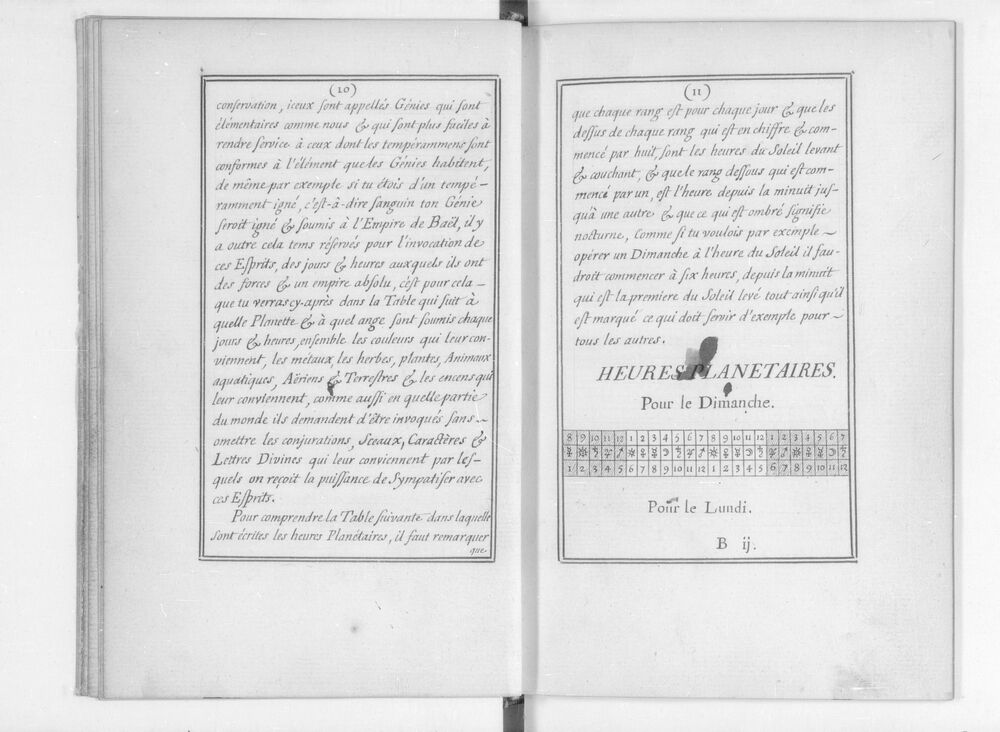 (10)
conservation, iceux sont appellés Génies qui sont
élémentaires comme nous & qui sont plus faciles à
rendre service à ceux dont les tempérammens sont
conformes à l'élément que les Génies habitent,
de même par exemple si tu étois d'un tempé-
ramment igné, c'est-à-dire sanguin ton Génie
seroit igné & soumis à l'Empire de Baël, il y
a outre cela tems réservés pour l'invocation de
ces Esprits, des jours & heures auxquels ils ont
des forces & un empire absolu, c'est pour cela -
que tu verras cy-après dans la Table qui suit à
quelle Planette & à quel ange sont soumis chaque
jours & heures, ensemble les couleurs qui leur con-
viennent, les métaux, les herbes, plantes, Animaux
aquatiques, Aëriens & Terrestres & les encens qui
leur conviennent, comme aussi en quelle partie
du monde ils demandent d'être invoqués sans -
omettre les conjurations, Sceaux, Caractères &
Lettres Divines qui leur conviennent par les-
quels on reçoit la puissance de Sympatiser avec
ces Esprits.
Pour comprendre la Table suivante dans laquelle
sont écrites les heures Planétaires, il faut remarquer
que
(11)
que chaque rang est pour chaque jour & que les
dessus de chaque rang qui est en chiffre & com-
mencé par huit, sont les heures du Soleil levant
& couchant, & que le rang dessous qui est com-
mencé par un, est l'heure depuis la minuit jus-
qu'à une autre & que ce qui est ombré signifie
nocturne, Comme si tu voulois par exemple -
opérer un Dimanche à l'heure du Soleil il fau-
droit commencer à six heures, depuis la minuit
qui est la premiere du Soleil levé tout ainsi qu'il
est marqué ce qui doit servir d'exemple pour -
tous les autres.
HEURES PLANETAIRES.
Pour le Dimanche.
8 9 10 11 12 1 2 3 4 5 6 7 8 9 10 11 12 1 2 3 4 5 6 7
1 2 3 4 5 6 7 8 9 10 11 12 1 2 3 4 5 6 7 8 9 10 11 12
Pour le Lundi.
B ij.